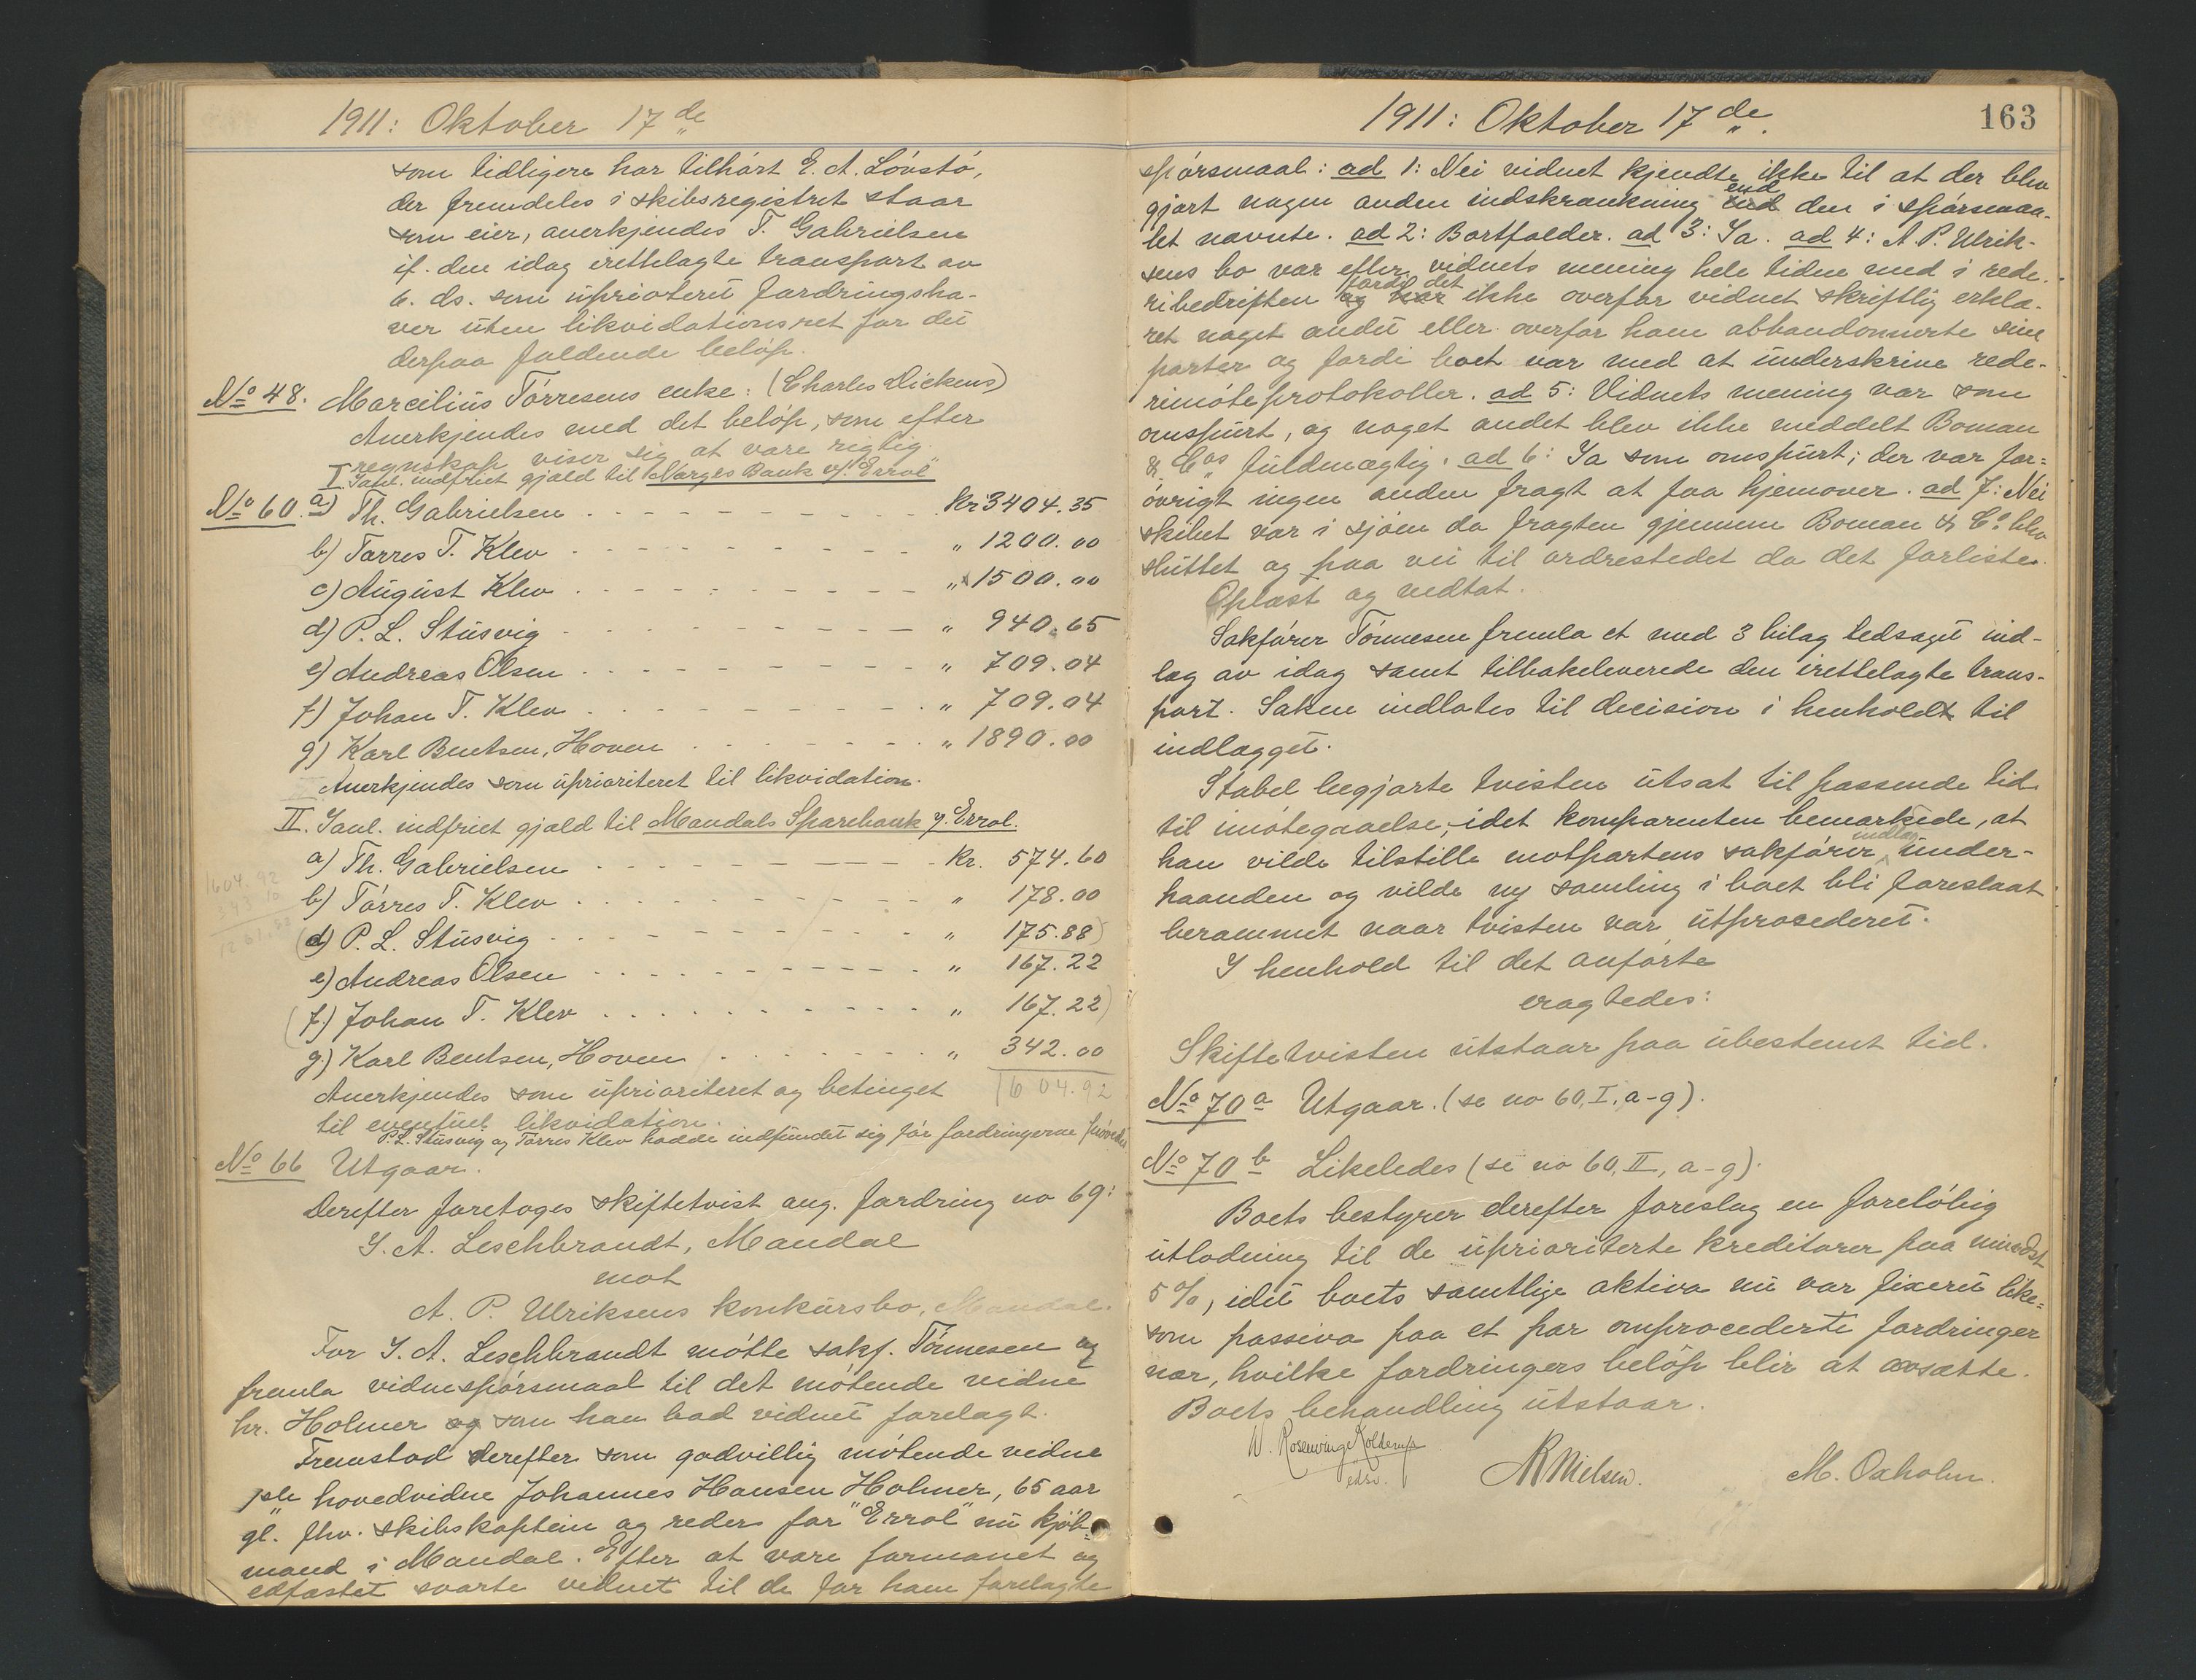 1911: Oktober 17de
som tidligere har tilhørt E. A. Løvstø,
der fremdeles i skibsregistret staar
som eier, anerkjendes T. Gabrielsen
if. den idag irettelagte transport av
6. ds. som uprioritert fordringsha-
ver uten likvidationsret for det
derpaa faldende beløp.
No 48. Marcilius Tørresens enke: (Charles Dickens)
Anerkjendes med det beløp, som efter
regnskap viser sig at være rigtig.
I. Saml. indfriet gjæld til Norges Bank v/ "Errol"
No 60. a) Th. Gabrielsen Kr. 3404.35
b) Tørres T. Klev " 1200.00
c) August Klev " 1500.00
d) P. L. Stusvig " 940.65
e) Andreas Olsen " 709.04
f) Johan T. Klev " 709.04
g) Karl Bentsen, Hoven " 1890.00
Anerkjendes som uprioriteret til likvidation.
II. Saml. indfriet gjæld til Mandals Sparebank v. Errol.
a) Th. Gabrielsen Kr. 574.60
b) Tørres T. Klev " 178.00
(d) P. L. Stusvig " 175.88)
e) Andreas Olsen " 167.22
(f) Johan T. Klev " 167.22)
g) Karl Bentsen, Hoven " 342.00
Anerkjendes som uprioriteret og betinget 1604.92
til eventuel likvidation.
P. L. Stusvig og Tørres Klev hadde indfundet sig før fordringerne prøvedes
No 66 Utgaar.
Derefter foretoges skiftetvist ang. fordring no 69:
J. A. Leschbrandt, Mandal
mot
A. P. Ulriksens konkursbo, Mandal.
For J. A. Leschbrandt møtte sakf. Tønnesen og
fremla vidnespørsmaal til det møtende vidne
hr. Holmer og som han bad vidnet forelagt.
Fremstod derefter som godvillig møtende vidne
1ste hovedvidne Johannes Hansen Holmer, 65 aar
gl. fhv. skibskaptein og reder for "Errol" nu kjøb-
mand i Mandal. Efter at være formanet og
edfæstet svarte vidnet til de for ham forelagte
1911: Oktober 17de.
163
spørsmaal: ad 1: Nei vidnet kjendte ikke til at der blev
gjort nogen anden indskrænkning end den i spørsmaa-
let nævnte. ad 2: Bortfalder. ad 3: Ja. ad 4: A. P. Ulrik-
sens bo var efter vidnets mening hele tiden med i rede-
ribedriften fordi det ikke overfor vidnet skriftlig erklæ-
ret noget andet eller overfor ham abbandonnerte sine
parter og fordi boet var med at underskrive rede-
rimøteprotokoller. ad 5: Vidnets mening var som
omspurt, og noget andet blev ikke meddelt Boman
& Cos fuldmægtig. ad 6: Ja som omspurt; der var for-
øvrigt ingen anden fragt at faa hjemover. ad 7: Nei
skibet var i sjøen da fragten gjennem Boman & Co. blev
sluttet og paa vei til ordrestedet da det forliste.
Oplæst og vedtat.
Sakfører Tønnesen fremla et med 3 bilag ledsaget ind-
læg av idag samt tilbakeleverede den irettelagte trans-
port. Saken indlates til decision i henholdt til
indlægget.
Stabel begjærte tvisten utsat til passende tid
til imøtegaaelse, idet komparenten bemærkede, at
han vilde tilstille motpartens sakfører indlæg under-
haanden og vilde ny samling i boet bli foreslaat
berammet naar tvisten var utprocederet.
I henhold til det anførte
eragtedes:
Skiftetvisten utstaar paa ubestemt tid.
No 70 a Utgaar. (se no 60, I, a-g).
No 70 b Likeledes (se no 60, II, a-g).
Boets bestyrer derefter foreslog en foreløbig
utlodning til de uprioriterte kreditorer paa mindst
5 %, idet boets samtlige aktiva nu var fixeret like-
som passiva paa et par omprocederte fordringer
nær, hvilke fordringers beløp blir at avsætte.
Boets behandling utstaar.
N. Rosenvinge Kolderup
edsv.
A Nielsen.
M. Oxholm.